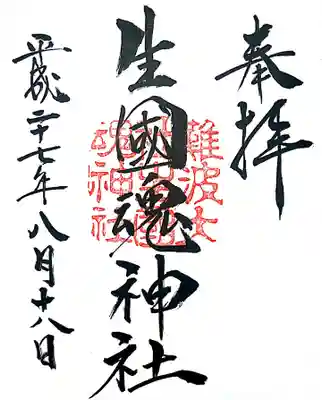 奉拝
生國魂神社
難波大社
平成二十七年八月十八日